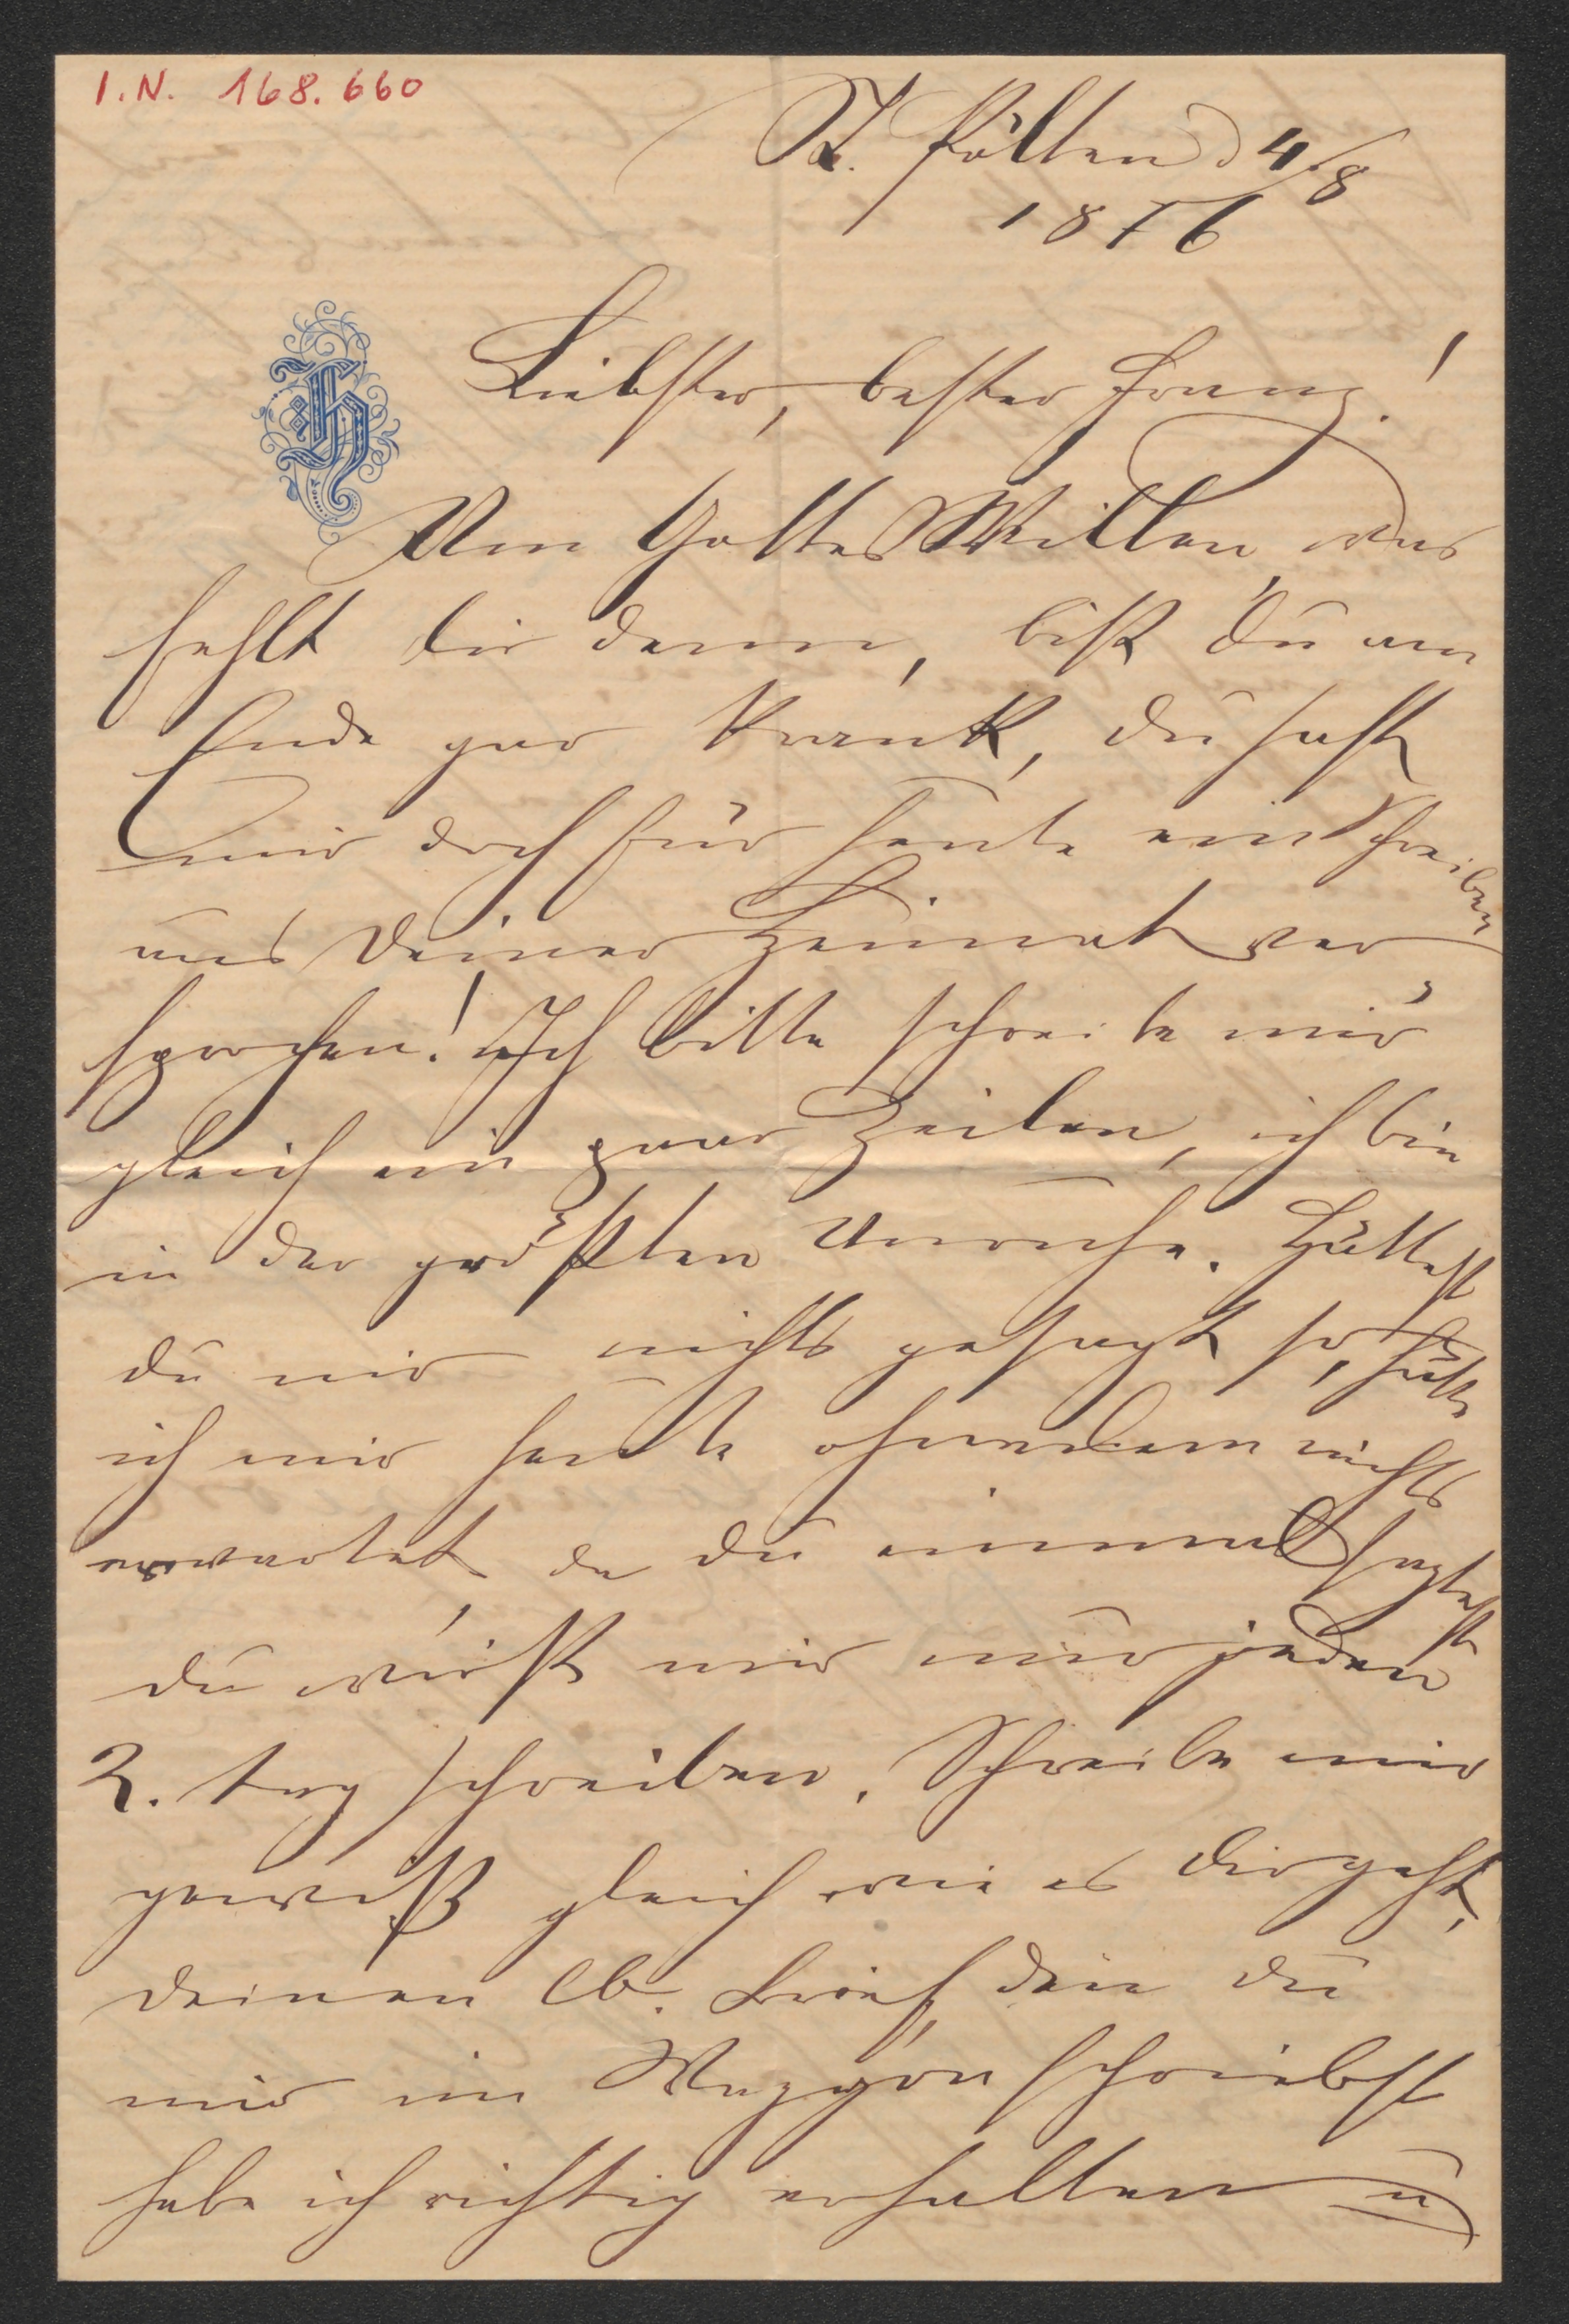 I.N. 168.660
St. Pölten d 4/8
1876
H
Liebster, bester Franz!
Um Gottes Willen, was
fehlt dir denn, bist du am
Ende gar krank, du hast
mir doch für heute ein Schreiben
aus deiner Heimat ver
sprochen! Ich bitte schreibe mir
gleich ein paar Zeilen, ich bin
in der größten Unruhe. Hättest
du mir nichts gesagt so, hätte
ich mir heute ohnedem nichts
erwartet, da du einmal sagtest
du wirst mir nur jeden
2. Tag schreiben. Schreibe mir
gewiß gleich wie es dir geht,
deinen lb. Brief, den du
mir im Waggon schriebst
habe ich richtig erhalten u